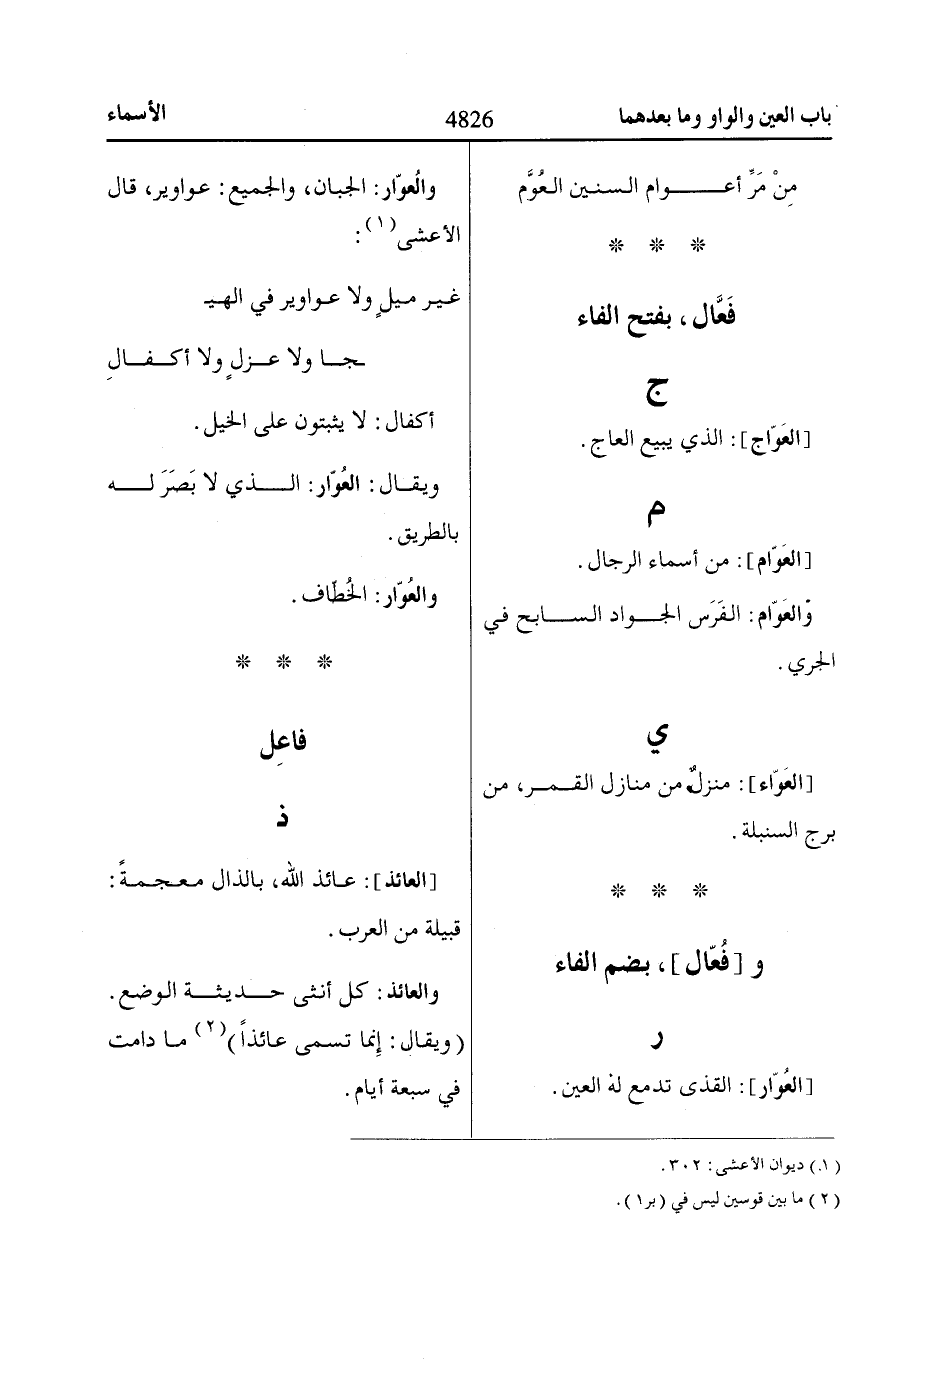 باب العين والواو وما بعدهما
4826
الأسماء
مِنْ مَرِّ أعـــوام السنين العُوَّم
* * *
فَعَّال، بفتح الفاء
ج
[العَوّاج]: الذي يبيع العاج.
م
[العَوّام]: من أسماء الرجال.
والعَوّام: الفَرَس الجـواد السـابح في
الجري.
ي
[العَوّاء]: منزلٌ من منازل القمـر، من
برج السنبلة.
* * *
و [فُعّال]، بضم الفاء
ر
[العُوّار]: القذى تدمع له العين.
والُعوّار: الجبان، والجميع: عواوير، قال
الأعشى(١):
غـير ميلٍ ولا عـواوير في الهيـ
ـجـا ولا عـزلٍ ولا أكـفـالِ
أكفال: لا يثبتون على الخيل.
ويقـال: العُوّار: الـذي لا بَصَرَ لـه
بالطريق.
والعُوّار: الخُطّاف.
* * *
فاعِل
ذ
[العائذ]: عـائذ الله، بالذال معجمـةً:
قبيلة من العرب.
والعائذ: كل أنثى حـديثـة الوضع.
(ويقال: إِنما تسمى عائذاً)(٢) مـا دامت
في سبعة أيام.
(١) ديوان الأعشى: ٣٠٢.
(٢) ما بين قوسين ليس في (بر١).